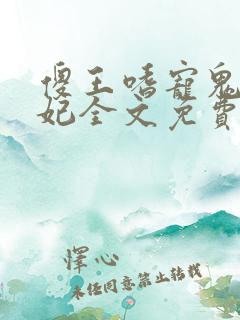 傻王嗜寵鬼
妃全文免費
懌心
未任同意禁止转载